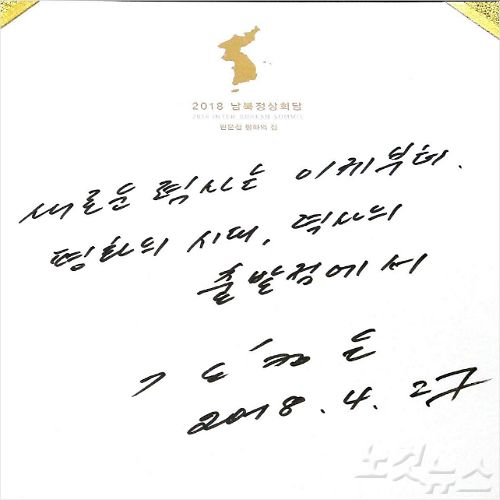 2018 남북정상회담
2018 INTER-KOREAN SUMMIT
판문점 평화의 집
새로운 력사는 이제부터.
평화의 시대, 력사의
출발점에서
김정은
2018. 4. 27
노컷뉴스